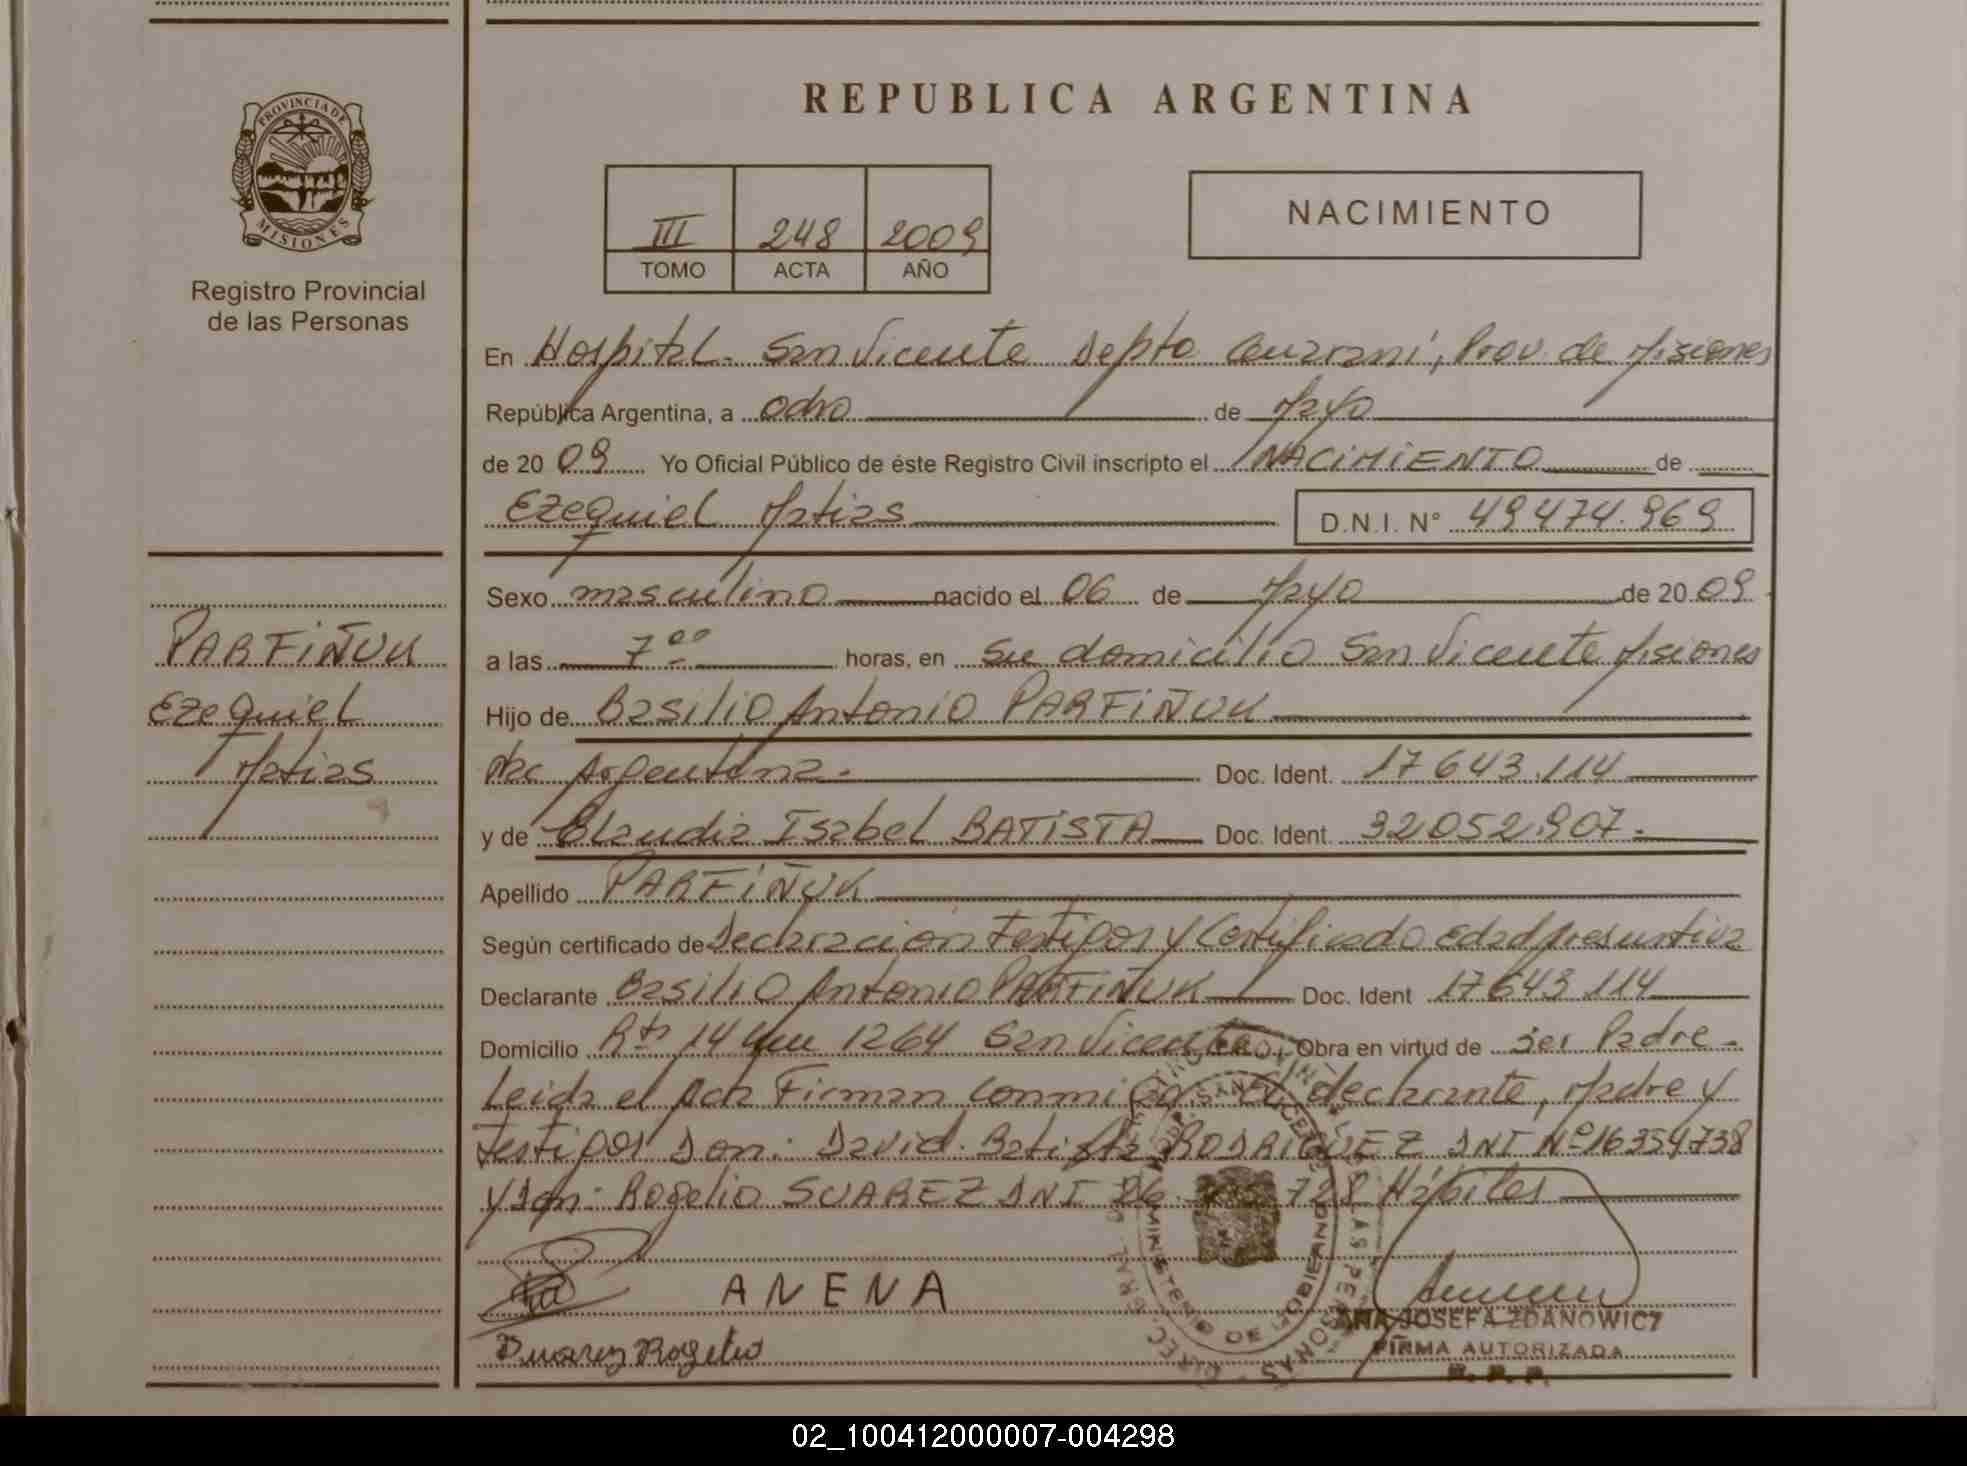 REPUBLICA ARGENTINA
PROVINCIA DE
MISIONES
Registro Provincial
de las Personas
III 248 2009
TOMO ACTA AÑO
NACIMIENTO
En Hospital - San Vicente Depto Guaraní, Prov. de Misiones
República Argentina, a ocho de Mayo
de 2009 Yo Oficial Público de éste Registro Civil inscripto el NACIMIENTO de
Ezequiel Matias D.N.I. N° 49474.969
Sexo masculino nacido el 06 de Mayo de 2009
a las 7 00 horas, en su domicilio San Vicente Misiones
Hijo de Basilio Antonio PARFIÑUK
Nac Argentina - Doc. Ident. 17643.114
y de Claudia Isabel BATISTA Doc. Ident. 32052.907 -
Apellido PARFIÑUK
Según certificado de Declaracion Testigos y Certificado edad presuntiva
Declarante Basilio Antonio PARFIÑUK Doc. Ident 17643.114
Domicilio Rta 14 Km 1264 San Vicente Obra en virtud de ser Padre -
Leida el Acta Firman conmigo el declarante, Madre y
Testigos Don: David Batista RODRIGUEZ DNI Nº 16354738
y Don: Rogelio SUAREZ DNI 26 728 Hábiles
PARFIÑUK
Ezequiel
Matias
ANENA
Suarez Rogelio
ANA JOSEFA ZDANOWICZ
FIRMA AUTORIZADA
R. P. P.
MINISTERIO DE GOBIERNO
02_100412000007-004298